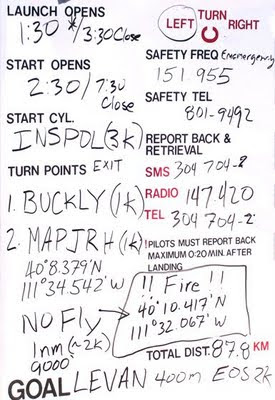 LAUNCH OPENS
1:30 / 3:30 Close
LEFT TURN RIGHT
SAFETY FREQ Emergency
151.955
START OPENS
2:30 / 7:30 Close
SAFETY TEL
801-9492
START CYL.
INSPOL (3k)
REPORT BACK & RETRIEVAL
SMS 304 704-2
TURN POINTS EXIT
RADIO 147.420
1. BUCKLY (1k)
TEL 304 704-2
2. MAPJRH (1k)
! PILOTS MUST REPORT BACK
MAXIMUM 0:20 MIN. AFTER
LANDING
40°8.379'N
111°34.542'W
!! Fire !!
40°10.417'N
111°32.067'W
NO Fly
1nm (~2k)
9000
TOTAL DIST. 87.8 KM
GOAL LEVAN 400m EOS 2k